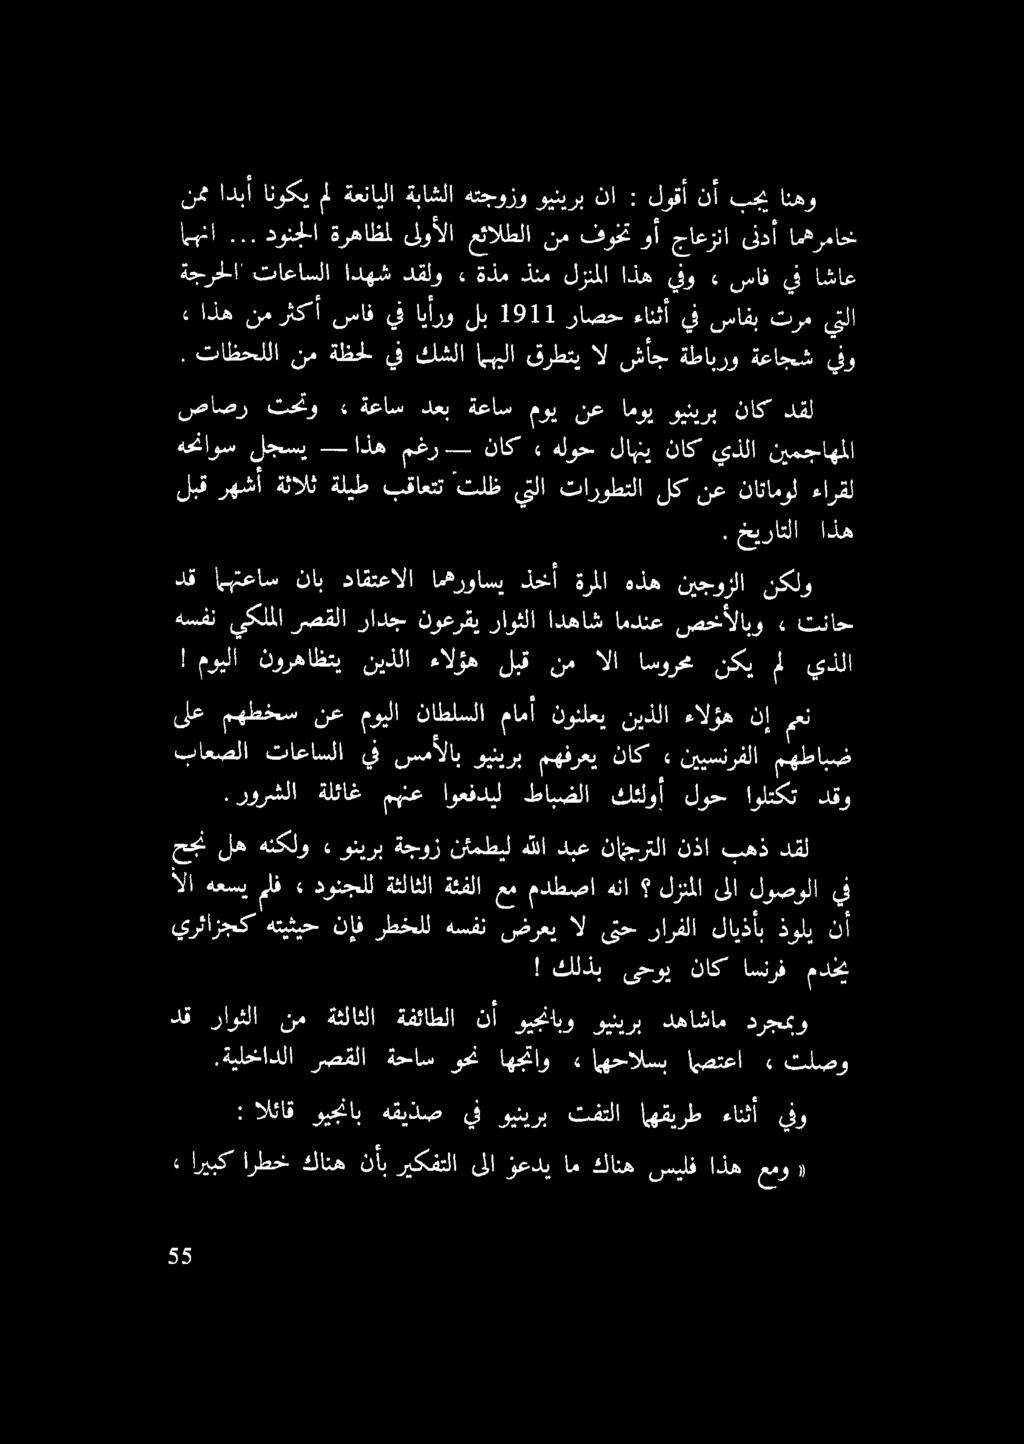 وهنا يجب أن أقول : ان برينيو وزوجته الشابة اليانعة لم يكونا أبدا ممن
خامرهما أدنى انزعاج أو تخوف من الطلائع الأولى لمظاهرة الجنود ... انهما
عاشا في فاس ، وفي هذا المنزل منذ مذة ، ولقد شهدا الساعات الحرجة
التي مرت بفاس في أثناء حصار 1911 بل ورأيا في فاس أكثر من هذا ،
وفي شجاعة ورباطة جأش لا يتطرق اليهما الشك في لحظة من اللحظات .
لقد كان برينيو يوما عن يوم ساعة بعد ساعة ، وتحت رصاص
المهاجمين الذي كان ينهال حوله ، كان — رغم هذا — يسجل سوانحه
لقراء لوماتان عن كل التطورات التي ظلت تتعاقب طيلة ثلاثة أشهر قبل
هذا التاريخ .
ولكن الزوجين هذه المرة أخذ يساورهما الاعتقاد بان ساعتهما قد
حانت ، وبالأخص عندما شاهدا الثوار يقرعون جدار القصر الملكي نفسه
الذي لم يكن محروسا الا من قبل هؤلاء الذين يتظاهرون اليوم !
نعم إن هؤلاء الذين يعلنون أمام السلطان اليوم عن سخطهم على
ضباطهم الفرنسيين ، كان يعرفهم برينيو بالأمس في الساعات الصعاب
وقد تكتلوا حول أولئك الضباط ليدفعوا عنهم غائلة الشرور .
لقد ذهب اذن الترجمان عبد الله ليطمئن زوجة برينو ، ولكنه هل نجح
في الوصول الى المنزل ؟ انه اصطدم مع الفئة الثالثة للجنود ، فلم يسعه الا
أن يلوذ بأذيال الفرار حتى لا يعرض نفسه للخطر فإن حيثيته كجزائري
يخدم فرنسا كان يوحى بذلك !
وبمجرد ماشاهد برينيو وبانجيو أن الطائفة الثالثة من الثوار قد
وصلت ، اعتصما بسلاحهما ، واتجها نحو ساحة القصر الداخلية.
وفي أثناء طريقهما التفت برينيو في صذيقه بانجيو قائلا :
« ومع هذا فليس هناك ما يدعؤ الى التفكير بأن هناك خطرا كبيرا ،
55